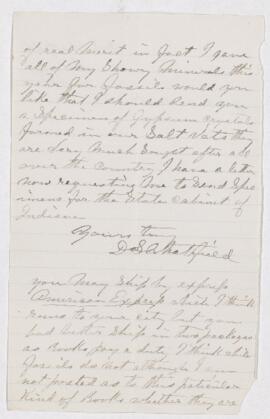 of real merit in fact I gave
all of my showy minerals this
year for fossils would you
like that I should send you
a Specimen of Gypsum crystals
formed in our Salt vats they
are very much sought after all
over the country I have a letter
now requesting me to send Spe-
cimens for the State Cabinet of
Indiana
Yours truly
you may ship by express
American Express which I think
runs to your city but you
had better ship in two packages
as Books pay a duty I think while
fossils do not although I am
not posted as to this particular
kind of Books whether they are